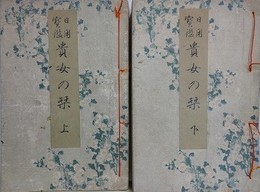 日用
宝鑑
貴女の栞
上
日用
宝鑑
貴女の栞
下